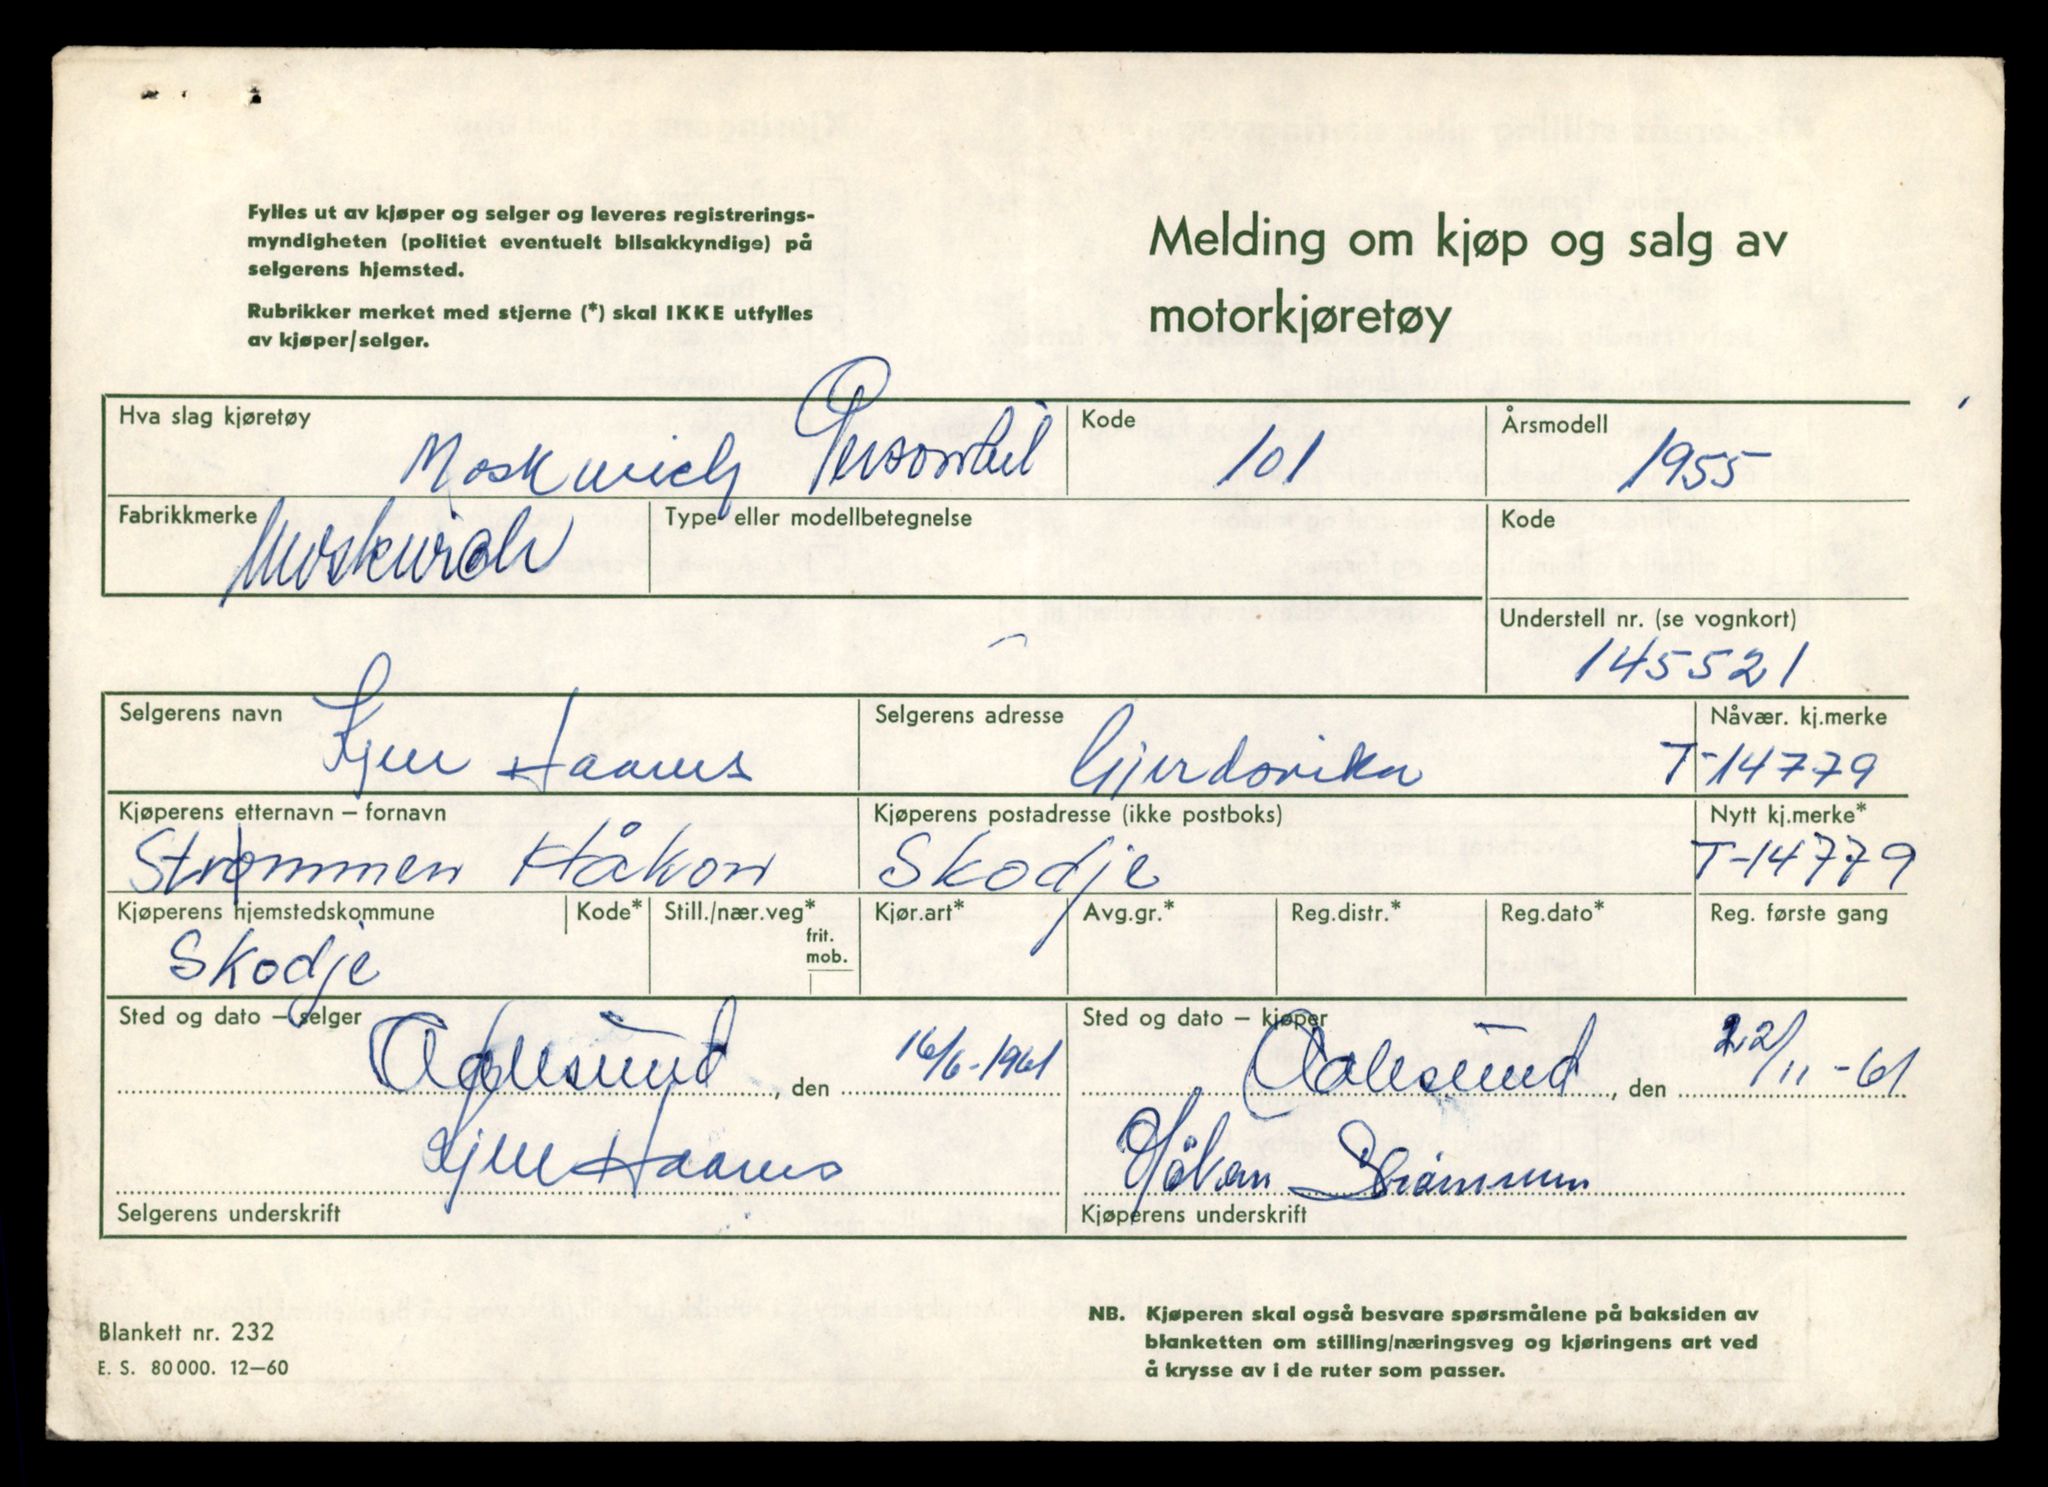 Fylles ut av kjøper og selger og leveres registrerings-
myndigheten (politiet eventuelt bilsakkyndige) på
selgerens hjemsted.
Rubrikker merket med stjerne (*) skal IKKE utfylles
av kjøper/selger.
Melding om kjøp og salg av
motorkjøretøy
Hva slag kjøretøy
Moskwich Personbil
Kode
101
Årsmodell
1955
Fabrikkmerke
Moskwich
Type eller modellbetegnelse
Kode
Understell nr. (se vognkort)
145521
Selgerens navn
Selgerens adresse
Gjerdsvika
Nåvær. kj.merke
T-14779
Kjøperens etternavn – fornavn
Strømmen Håkon
Kjøperens postadresse (ikke postboks)
Skodje
Nytt kj.merke*
T-14779
Kjøperens hjemstedskommune
Skodje
Kode*
Still./nær.veg*
frit.
mob.
Kjør.art*
Avg.gr.*
Reg.distr.*
Reg.dato*
Reg. første gang
Sted og dato – selger
Aalesund, den 16/6-1961
Sted og dato – kjøper
Aalesund, den 22/11-61
Håkon Strømmen
Selgerens underskrift
Kjøperens underskrift
Blankett nr. 232
E. S. 80000. 12–60
NB. Kjøperen skal også besvare spørsmålene på baksiden av
blanketten om stilling/næringsveg og kjøringens art ved
å krysse av i de ruter som passer.